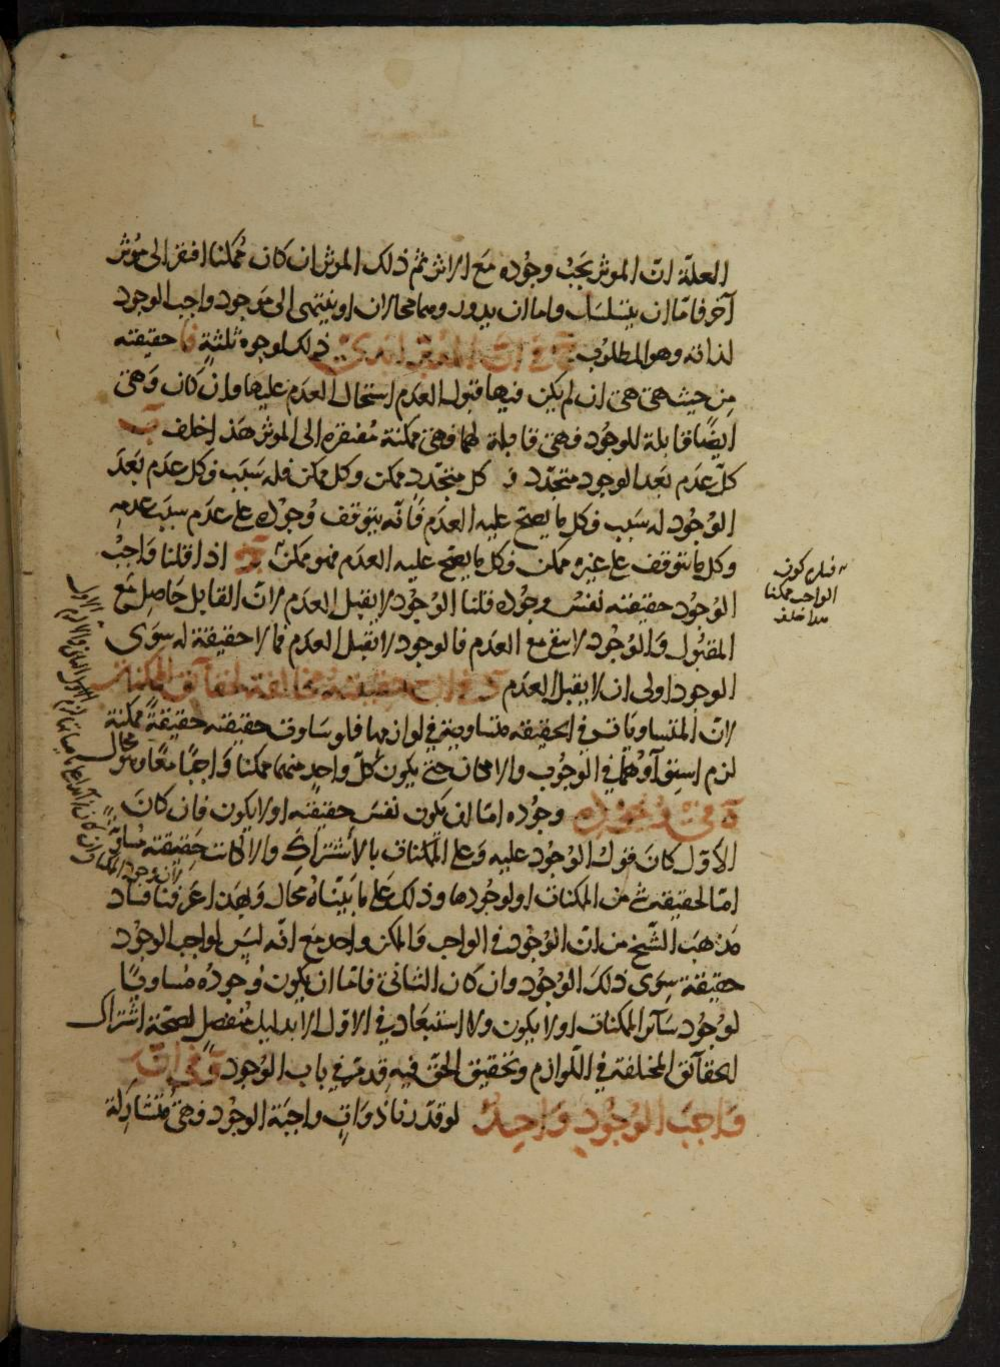 العلة ان الموثر يجب وجوده مع الاثر ثم ذلك الموثر ان كان ممكنا افتقر الى موثر
آخر فاما ان يتسلسل واما ان يدور وهما محالان او ينتهى الى موجود واجب الوجود
لذاته وهو المطلوب ج فى ان المؤثر ابدى ذلك لوجوه ثلثة ا حقيقته
من حيث هى هى ان لم يكن فيها قبول العدم استحال العدم عليها وان كان وهى
ايضا قابلة للوجود فهى قابلة لهما فهى ممكنة مفتقرة الى الموثر هذا خلف ب
كل عدم بعد الوجود متجدد و كل متجدد ممكن وكل ممكن فله سبب فكل عدم بعد
الوجود له سبب فكل ما يصح عليه العدم فانه يتوقف وجوده على عدم سبب عدمه
وكل ما يتوقف على غيره ممكن فكل ما يصح عليه العدم فهو ممكن ج اذا قلنا واجب
الوجود حقيقته نفس وجوده قلنا الوجود لا يقبل العدم لان القابل حاصل مع
المقبول والوجود لا يبقى مع العدم فالوجود لا يقبل العدم فما لا حقيقة له سوى
الوجود اولى ان لا يقبل العدم د فى ان حقيقته مخالفة لحقائق الممكنات
لان المتساويات فى الحقيقة متساوية فى لوازمها فلو ساوت حقيقته حقيقة ممكنة
لزم استواؤهما فى الوجوب والامكان حتى يكون كل واحد منهما ممكنا واجبا معا وهو محال
ه فى وجوده وجوده اما ان يكون نفس حقيقته او لا يكون فان كان
الاول كان قول الوجود عليه وعلى الممكنات بالاشتراك والا لكانت حقيقته مساوية
اما لحقيقة شئ من الممكنات او لوجودها وذلك على ما بيناه محال ولهذا عرفنا فساد
مذهب الشيخ من ان الوجود فى الواجب والممكن واحد مع انه ليس لواجب الوجود
حقيقة سوى ذلك الوجود وان كان الثانى فاما ان يكون وجوده مساويا
لوجود سائر الممكنات او لا يكون ولا استبعاد فى الاول الا بدليل منفصل لصحة اشتراك
الحقائق المختلفة فى اللوازم وتحقيق الحق فيه قد مر فى باب الوجود و فى ان
واجب الوجود واحد لو قدرنا ذوات واجبة الوجود فهى متشاركة
كون
الواجب ممكنا
هذا خلف